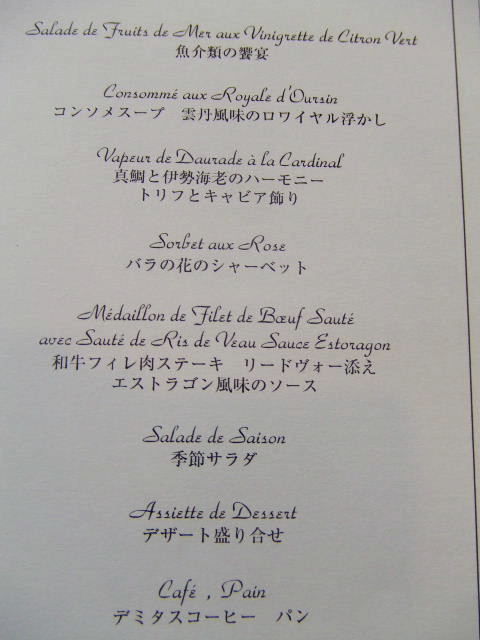 Salade de Fruits de Mer aux Vinigrette de Citron Vert
魚介類の饗宴
Consommé aux Royale d'Oursin
コンソメスープ 雲丹風味のロワイヤル浮かし
Vapeur de Daurade à la Cardinal
真鯛と伊勢海老のハーモニー
トリフとキャビア飾り
Sorbet aux Rose
バラの花のシャーベット
Médaillon de Filet de Bœuf Sauté
avec Sauté de Ris de Veau Sauce Estoragon
和牛フィレ肉ステーキ リードヴォー添え
エストラゴン風味のソース
Salade de Saison
季節サラダ
Assiette de Dessert
デザート盛り合せ
Café , Pain
デミタスコーヒー パン